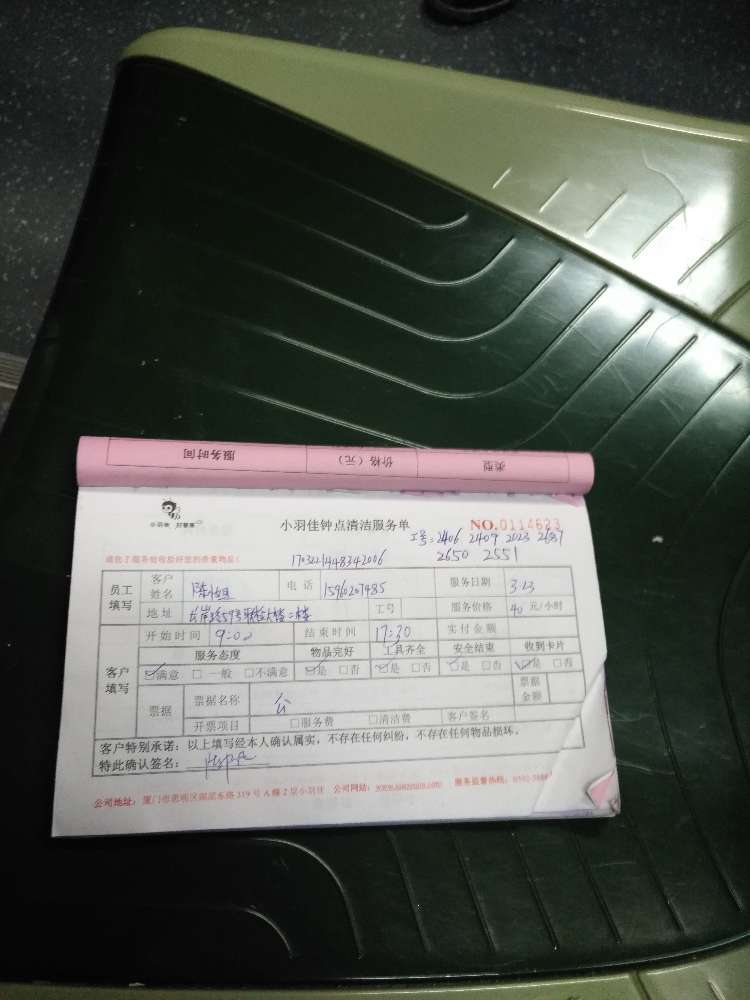 服务时间 价格（元） 类型
小羽佳 好管家
小羽佳钟点清洁服务单 NO.0114623
工号：2406 2409 2023 2687
2650 2551
1703221448342006
员工填写 客户姓名 陈 电话 15960207485 服务日期 3.23
地址 工号 服务价格 40 元/小时
客户填写 开始时间 9:00 结束时间 17:30 实付金额
服务态度 物品完好 工具齐全 安全结束 收到卡片
☑满意 □一般 □不满意 ☑是 □否 ☑是 □否 ☑是 □否 ☑是 □否
票据 票据名称 公 票据金额
开票项目 □服务费 □清洁费 客户签名
客户特别承诺：以上填写经本人确认属实，不存在任何纠纷，不存在任何物品损坏。
特此确认签名：
公司地址：厦门市思明区湖滨东路319号A幢2层小羽佳 公司网站： 服务监督热线：0592-